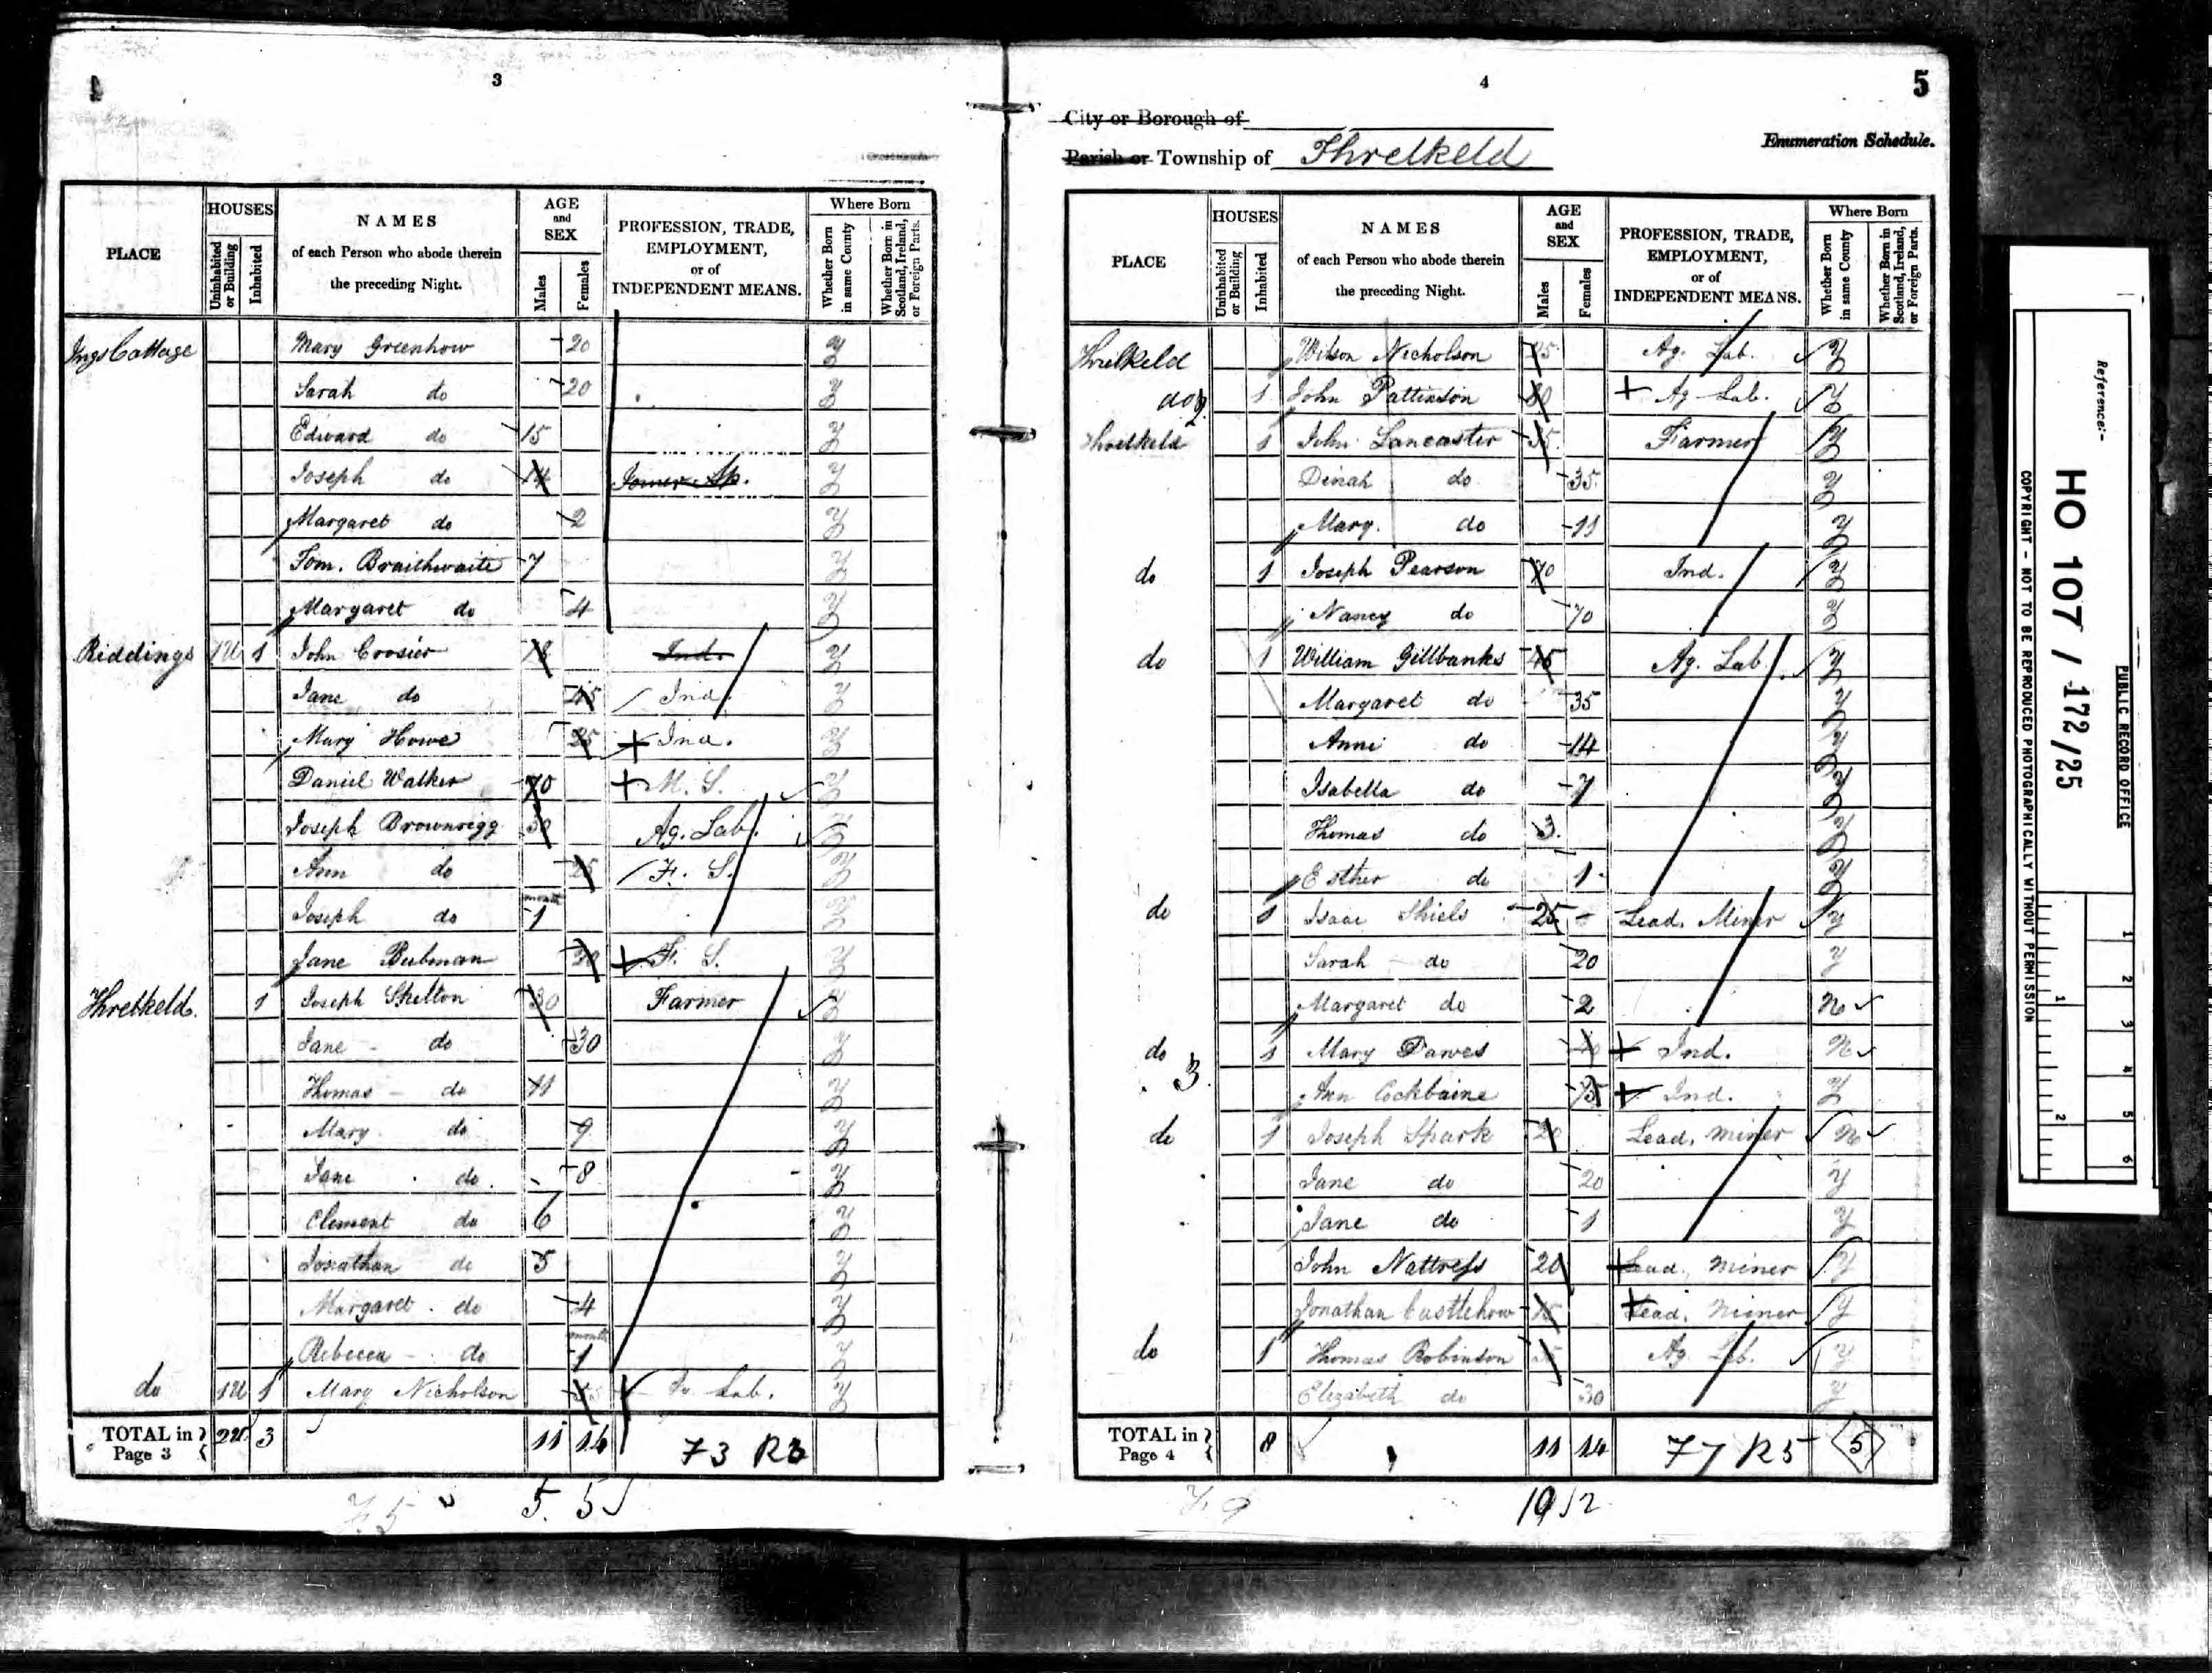 3
PLACE
HOUSES
Uninhabited or Building
Inhabited
NAMES
of each Person who abode therein
the preceding Night.
AGE
and
SEX
Males
Females
PROFESSION, TRADE,
EMPLOYMENT,
or of
INDEPENDENT MEANS.
Where Born
Whether Born in same County
Whether Born in Scotland, Ireland, or Foreign Parts.
Ings Cottage Mary Greenhow 20 Y
Sarah do 20 Y
Edward do 15 Y
Joseph do 14 Joiner Ap. Y
Margaret do 2 Y
Tom. Braithwaite 7 Y
Margaret do 4 Y
Riddings 1U 1 John Crosier Ind. Y
Jane do 45 Ind. Y
Mary Howe 25 Ind. Y
Daniel Walker 70 M. S. Y
Joseph Brownrigg 30 Ag. Lab. Y
Ann do 25 F. S. Y
Joseph do 1 month Y
Jane 30 F. S. Y
Threlkeld. 1 Joseph Shelton 30 Farmer Y
Jane do 30 Y
Thomas do 11 Y
Mary do 9 Y
Jane do 8 Y
Clement do 6 Y
Jonathan do 5 Y
Margaret do 4 Y
Rebecca do 1 month Y
do 1U 1 Mary Nicholson Lab. Y
TOTAL in Page 3 2U 3 11 14 73 R3
5 5
4
5
City or Borough of
Parish or Township of Threlkeld
Enumeration Schedule.
PLACE
HOUSES
Uninhabited or Building
Inhabited
NAMES
of each Person who abode therein
the preceding Night.
AGE
and
SEX
Males
Females
PROFESSION, TRADE,
EMPLOYMENT,
or of
INDEPENDENT MEANS.
Where Born
Whether Born in same County
Whether Born in Scotland, Ireland, or Foreign Parts.
Threlkeld Wilson Nicholson Ag. Lab. Y
do 2 1 John Pattinson 80 Ag. Lab. Y
Threlkeld 1 John Lancaster 35 Farmer Y
Dinah do 35 Y
Mary do 11 Y
do 1 Joseph Pearson 70 Ind. Y
Nancy do 70 Y
do 1 William Gillbanks 45 Ag. Lab. Y
Margaret do 35 Y
Anne do 14 Y
Isabella do 7 Y
Thomas do 3 Y
Esther do 1 Y
do 1 Isaac Shiels 25 Lead. Miner Y
Sarah do 20 Y
Margaret do 2 N
do 1 Mary Dawes Ind. N
3 Ann Cockbaine 75 Ind. Y
do 1 Joseph Spark 20 Lead. Miner N
Jane do 20 Y
Jane do 1 Y
John Nattress 20 Lead. Miner Y
Jonathan Custlehow 15 Lead. Miner Y
do 1 Thomas Robinson Ag. Lab. Y
Elizabeth do 30 Y
TOTAL in Page 4 8 11 14 77 R5 5
10 12
Reference:-
HO 107 / 172/25
PUBLIC RECORD OFFICE
COPYRIGHT - NOT TO BE REPRODUCED PHOTOGRAPHICALLY WITHOUT PERMISSION
1 2 3 4 5 6
1 2